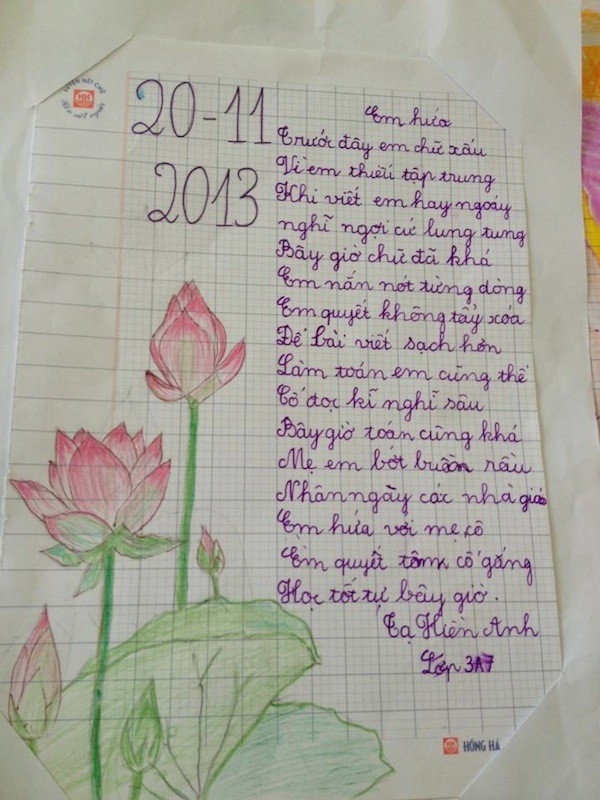 20-11
2013
Em hứa
Trước đây em chữ xấu
Vì em thiếu tập trung
Khi viết em hay ngoáy
nghĩ ngợi cứ lung tung
Bây giờ chữ đã khá
Em nắn nót từng dòng
Em quyết không tẩy xóa
Để bài viết sạch hơn
Làm toán em cũng thế
Cố đọc kĩ nghĩ sâu
Bây giờ toán cũng khá
Mẹ em bớt buồn rầu
Nhân ngày các nhà giáo
Em hứa với mẹ, cô
Em quyết tâm cố gắng
Học tốt tự bây giờ.
Tạ Hiền Anh
Lớp 3A7
HH HỒNG HÀ